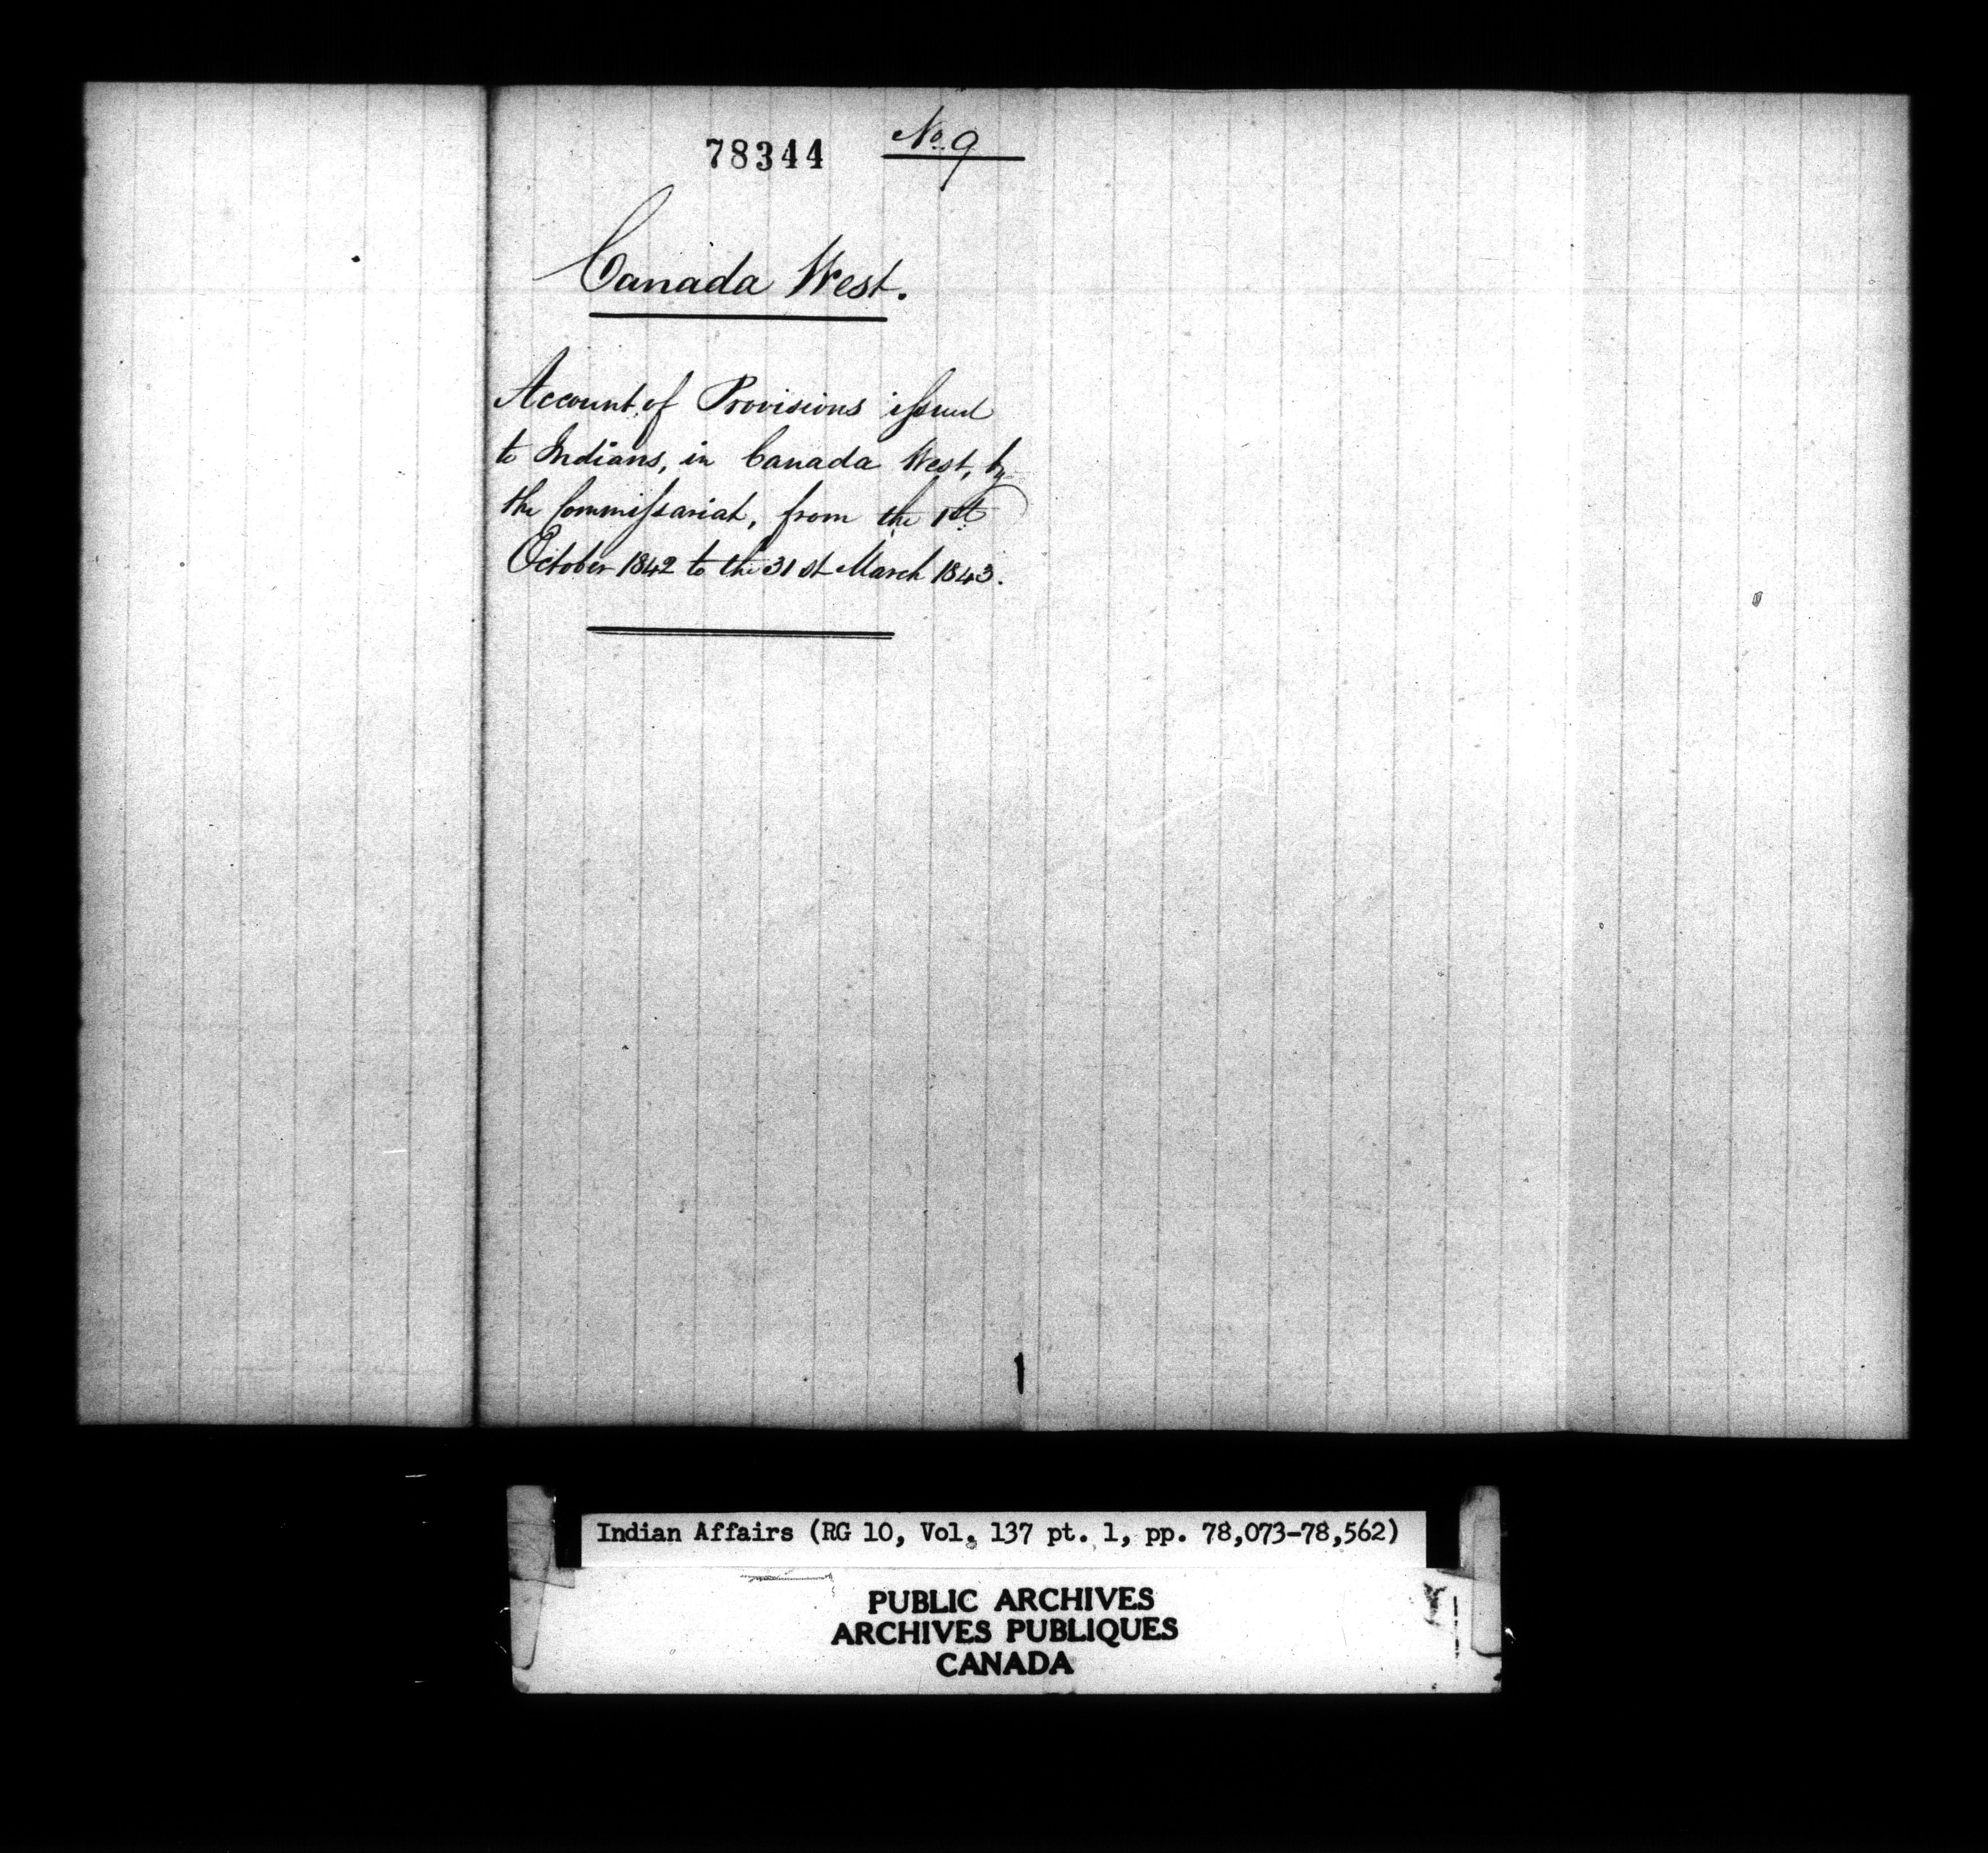 78344 No. 9
Canada West.
Account of Provisions issued
to Indians, in Canada West, by
the Commissariat, from the 1st
October 1842 to the 31st March 1843.
Indian Affairs (RG 10, Vol. 137 pt. 1, pp. 78,073-78,562)
PUBLIC ARCHIVES
ARCHIVES PUBLIQUES
CANADA